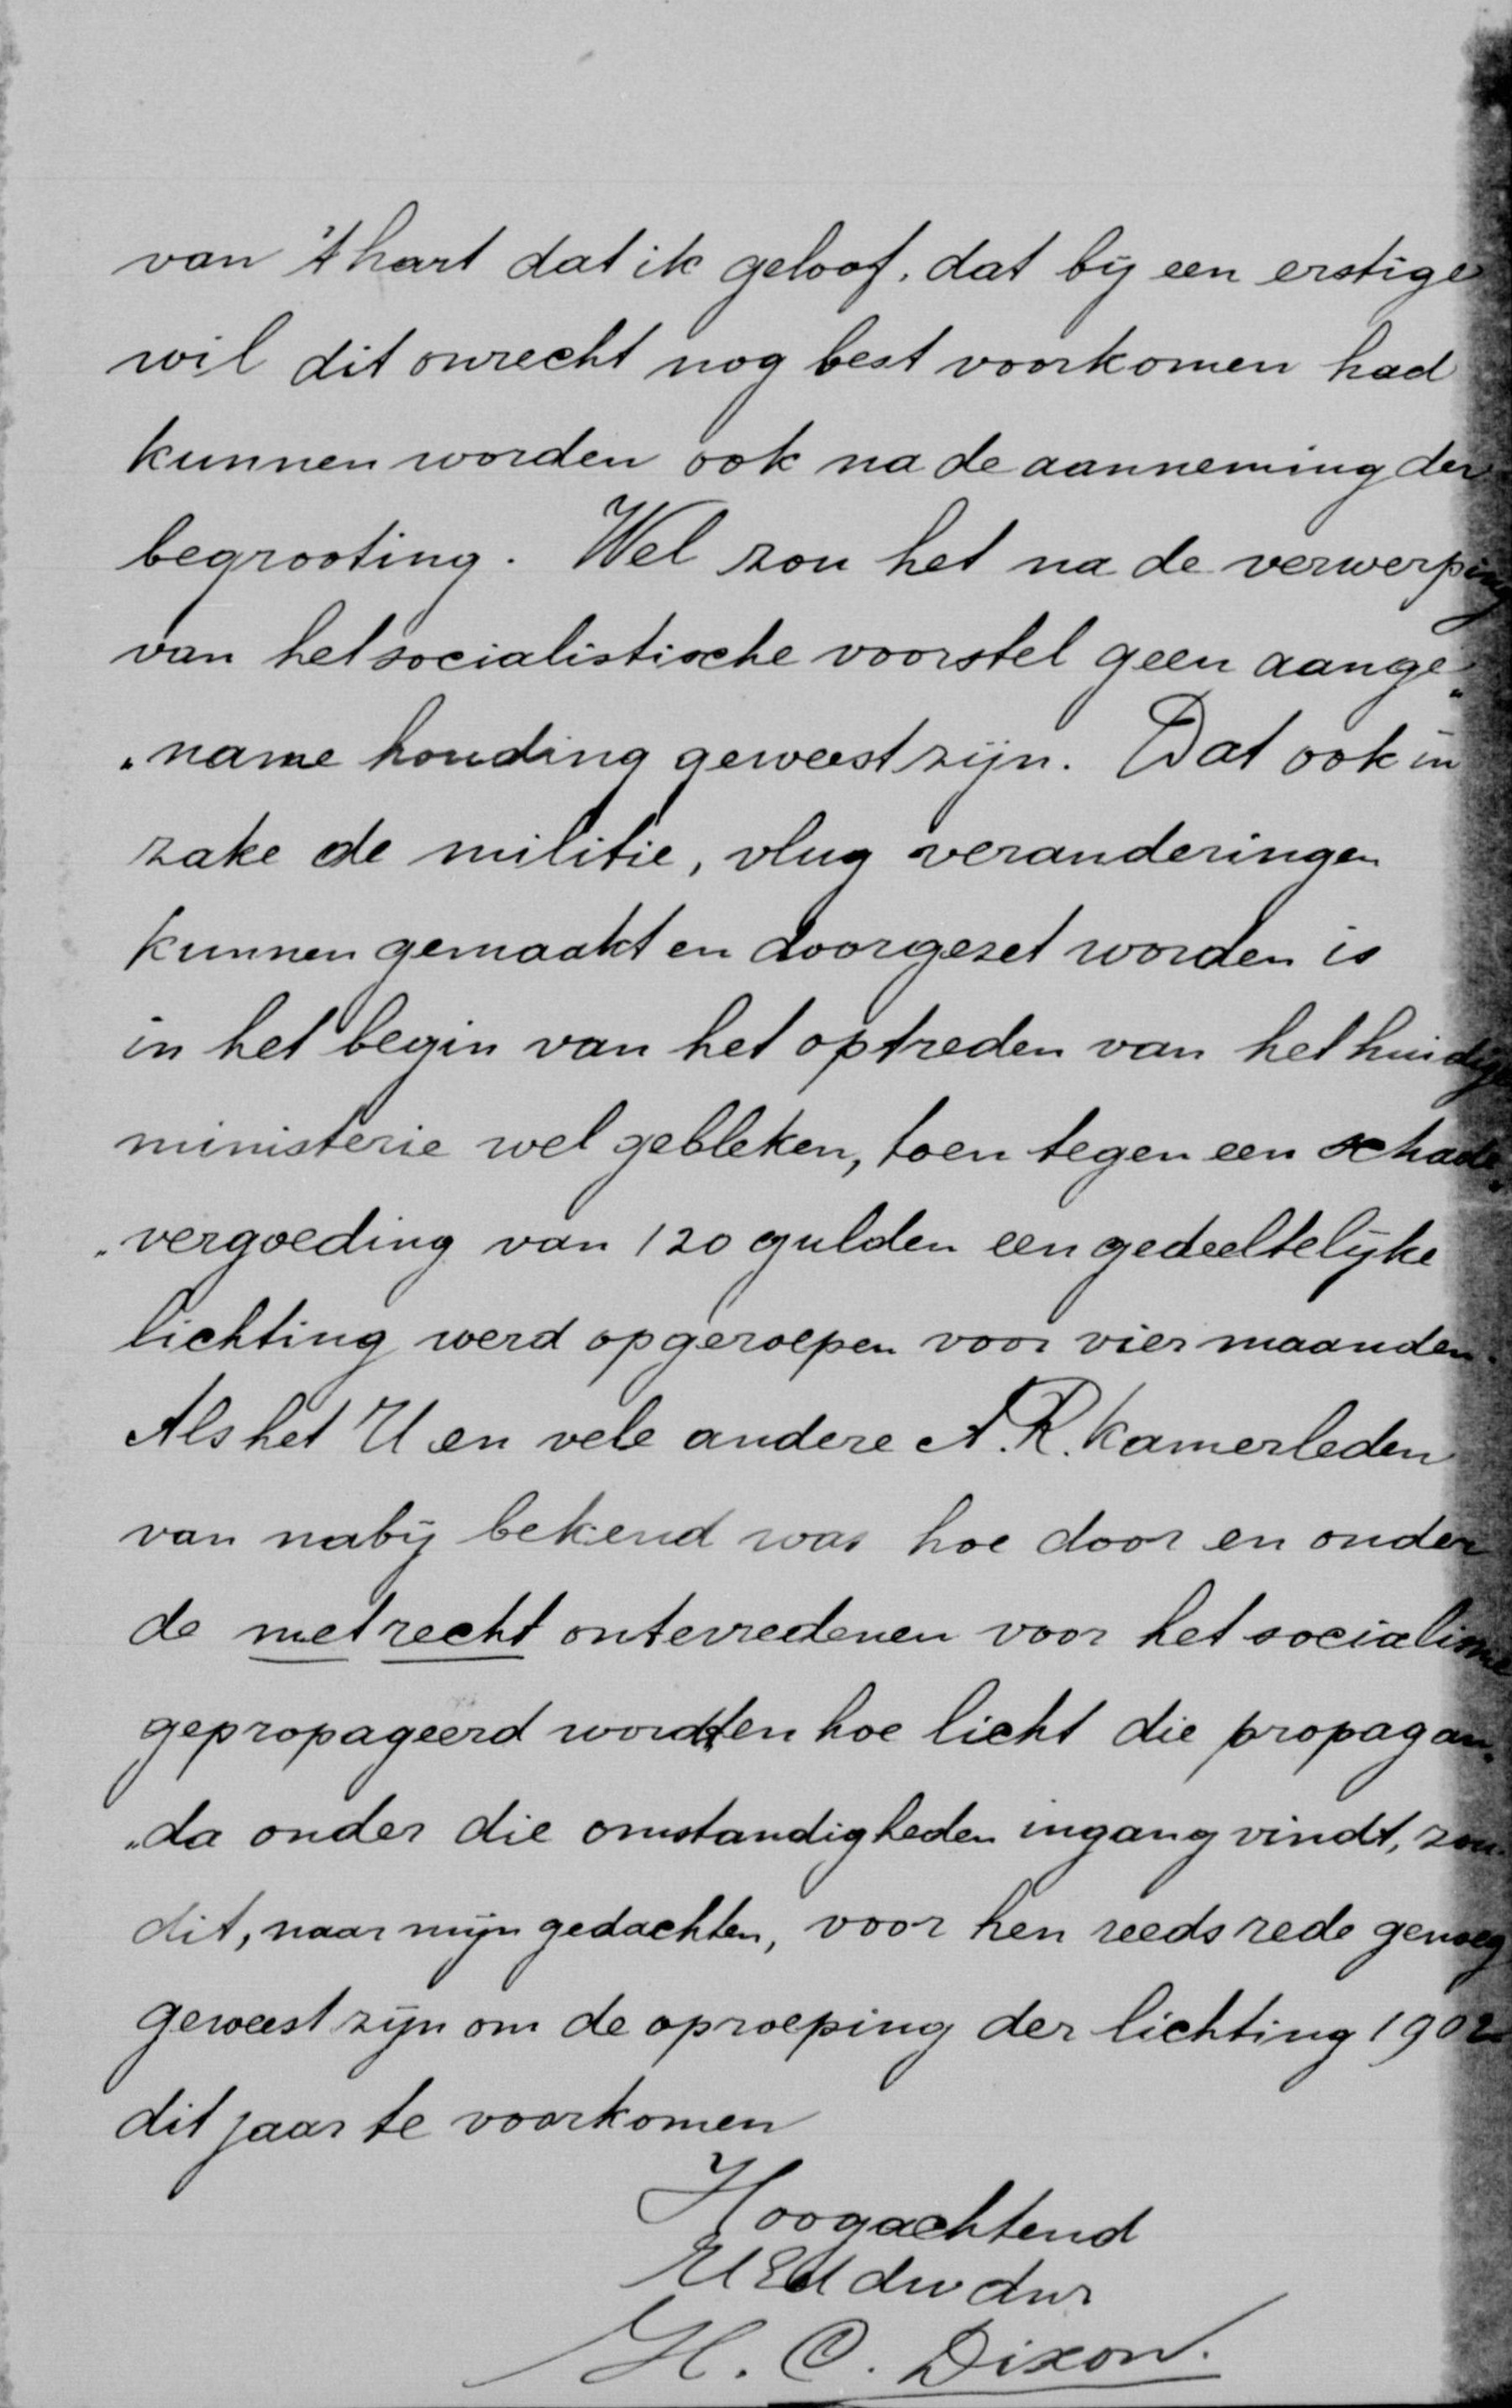 van 't hart dat ik geloof, dat bij een erstige
wil dit onrecht nog best voorkomen had
kunnen worden ook na de aanneming der
begrooting. Wel zou het na de verwerping
van het socialistische voorstel geen aange„
„name houding geweest zijn. Dat ook in
zake de militie, vlug veranderingen
kunnen gemaakt en doorgezet worden is
in het begin van het optreden van het huidige
ministerie wel gebleken, toen tegen een schade„
„vergoeding van 120 gulden een gedeeltelijke
lichting werd opgeroepen voor vier maanden.
Als het U en vele andere A.R. Kamerleden
van nabij bekend was hoe door en onder
de met recht ontevredenen voor het socialisme
gepropageerd wordt en hoe licht die propagan„
„da onder die omstandigheden ingang vindt, zou
dit, naar mijn gedachten, voor hen reeds rede genoeg
geweest zijn om de oproeping der lichting 1902
dit jaar te voorkomen
Hoogachtend
UEd dw dnr
H. C. Dixon.